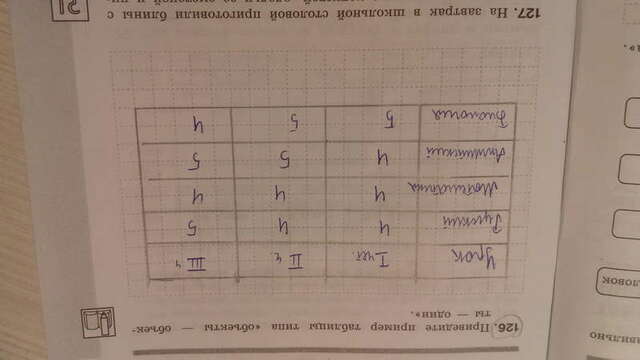 126. Приведите пример таблицы типа «объекты — объек-
ты — один».
Урок I чет. II ч III ч
Русский 4 4 5
Математика 4 4 4
Английский 4 5 5
Биология 5 5 4
127. На завтрак в школьной столовой приготовили блины с
21
ловок
авильно